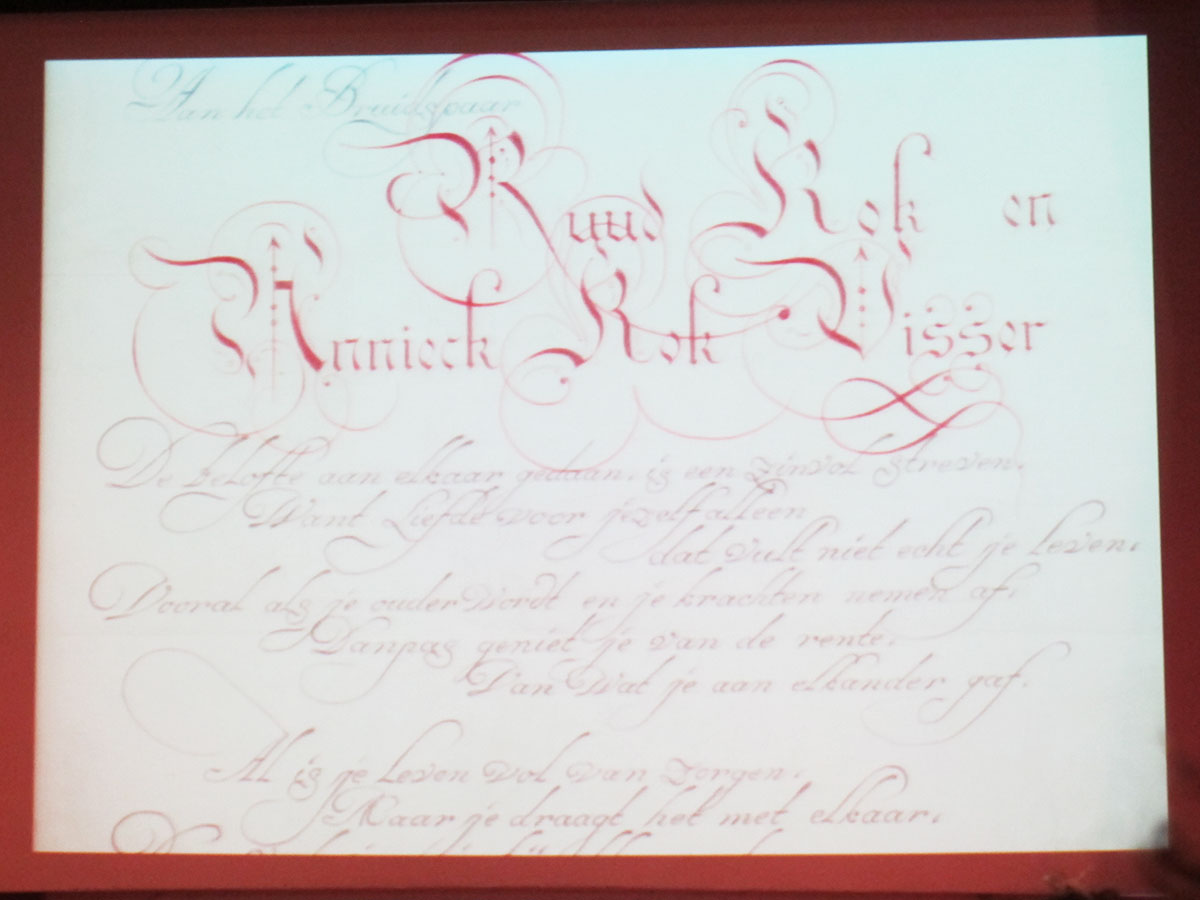 Aan het Bruidspaar
Ruud Kok en
Annieck Kok Visser
De belofte aan elkaar gedaan, is een zinvol streven.
Want Liefde voor jezelf alleen
dat vult niet echt je leven.
Vooral als je ouder wordt en je krachten nemen af,
Dan pas geniet je van de rente,
Van wat je aan elkander gaf.
Al is je leven vol van zorgen,
Maar je draagt het met elkaar,